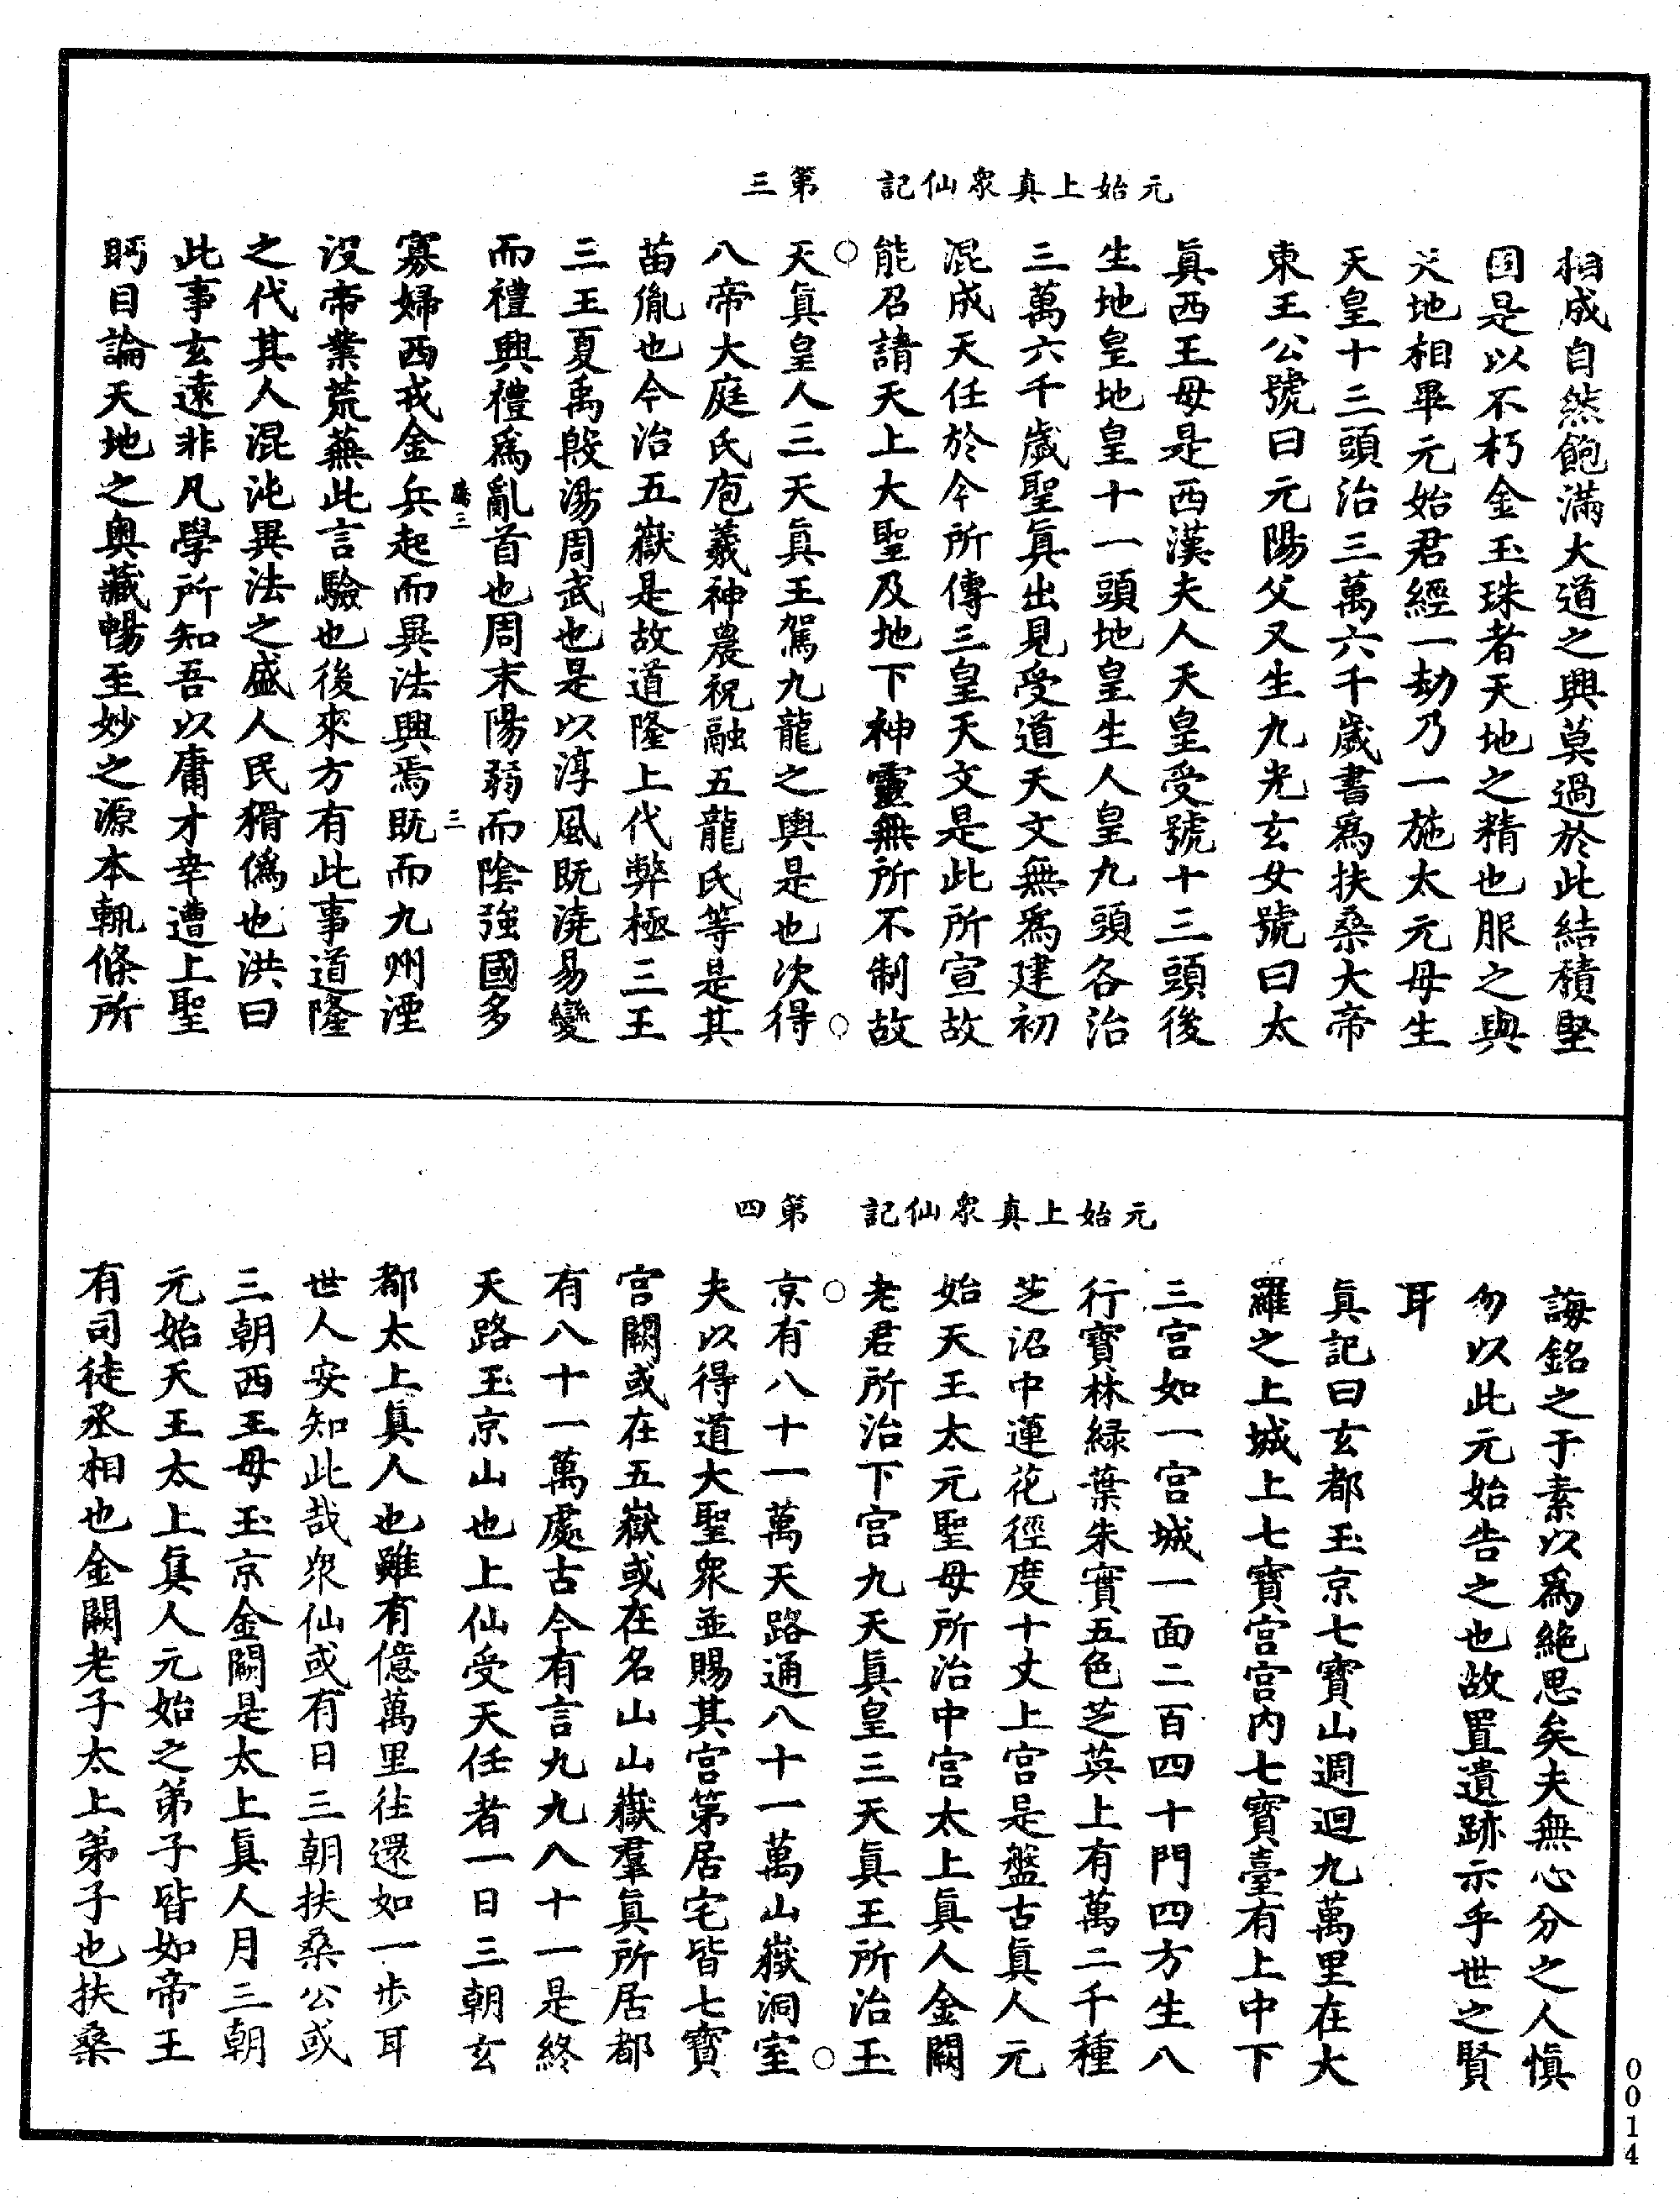 元始上真衆仙記　第三
相成自然飽滿大道之興莫過於此結積堅
固是以不朽金玉珠者天地之精也服之與
天地相畢元始君經一劫乃一施太元母生
天皇十三頭治三萬六千歲書爲扶桑大帝
東王公號曰元陽父又生九光玄女號曰太
眞西王母是西漢夫人天皇受號十三頭後
生地皇地皇十一頭地皇生人皇九頭各治
三萬六千歲聖眞出見受道天文無爲建初
混成天任於今所傳三皇天文是此所宣故
能召請天上大聖及地下神靈無所不制故
天眞皇人三天眞王駕九龍之輿是也次得
八帝大庭氏庖羲神農祝融五龍氏等是其
苗胤也今治五嶽是故道隆上代弊極三王
三王夏禹殷湯周武也是以淳風既澆易變
而禮興禮爲亂首也周末陽弱而陰強國多
三
寡婦西戎金兵起而異法興焉既而九州湮
沒帝業荒蕪此言驗也後來方有此事道隆
之代其人混沌異法之盛人民猾僞也洪曰
此事玄遠非凡學所知吾以庸才幸遭上聖
眄目論天地之奥藏暢至妙之源本輒條所
元始上真衆仙記　第四
誨銘之于素以爲絶思矣夫無心分之人慎
勿以此元始告之也故置遺跡示乎世之賢
耳
眞記曰玄都玉京七寶山週迴九萬里在大
羅之上城上七寶宮宮内七寶臺有上中下
三宮如一宮城一面二百四十門四方生八
行寶林緑葉朱實五色芝英上有萬二千種
芝沼中蓮花徑度十丈上宮是盤古眞人元
始天王太元聖母所治中宮太上眞人金闕
老君所治下宮九天眞皇三天眞王所治玉
京有八十一萬天路通八十一萬山嶽洞室
夫以得道大聖衆並賜其宮第居宅皆七寶
宮闕或在五嶽或在名山山嶽羣眞所居都
有八十一萬處古今有言九九八十一是終
天路玉京山也上仙受天任者一日三朝玄
都太上眞人也雖有億萬里往還如一步耳
世人安知此哉衆仙或有日三朝扶桑公或
三朝西王母玉京金闕是太上眞人月三朝
元始天王太上眞人元始之弟子皆如帝王
有司徒丞相也金闕老子太上弟子也扶桑
0014